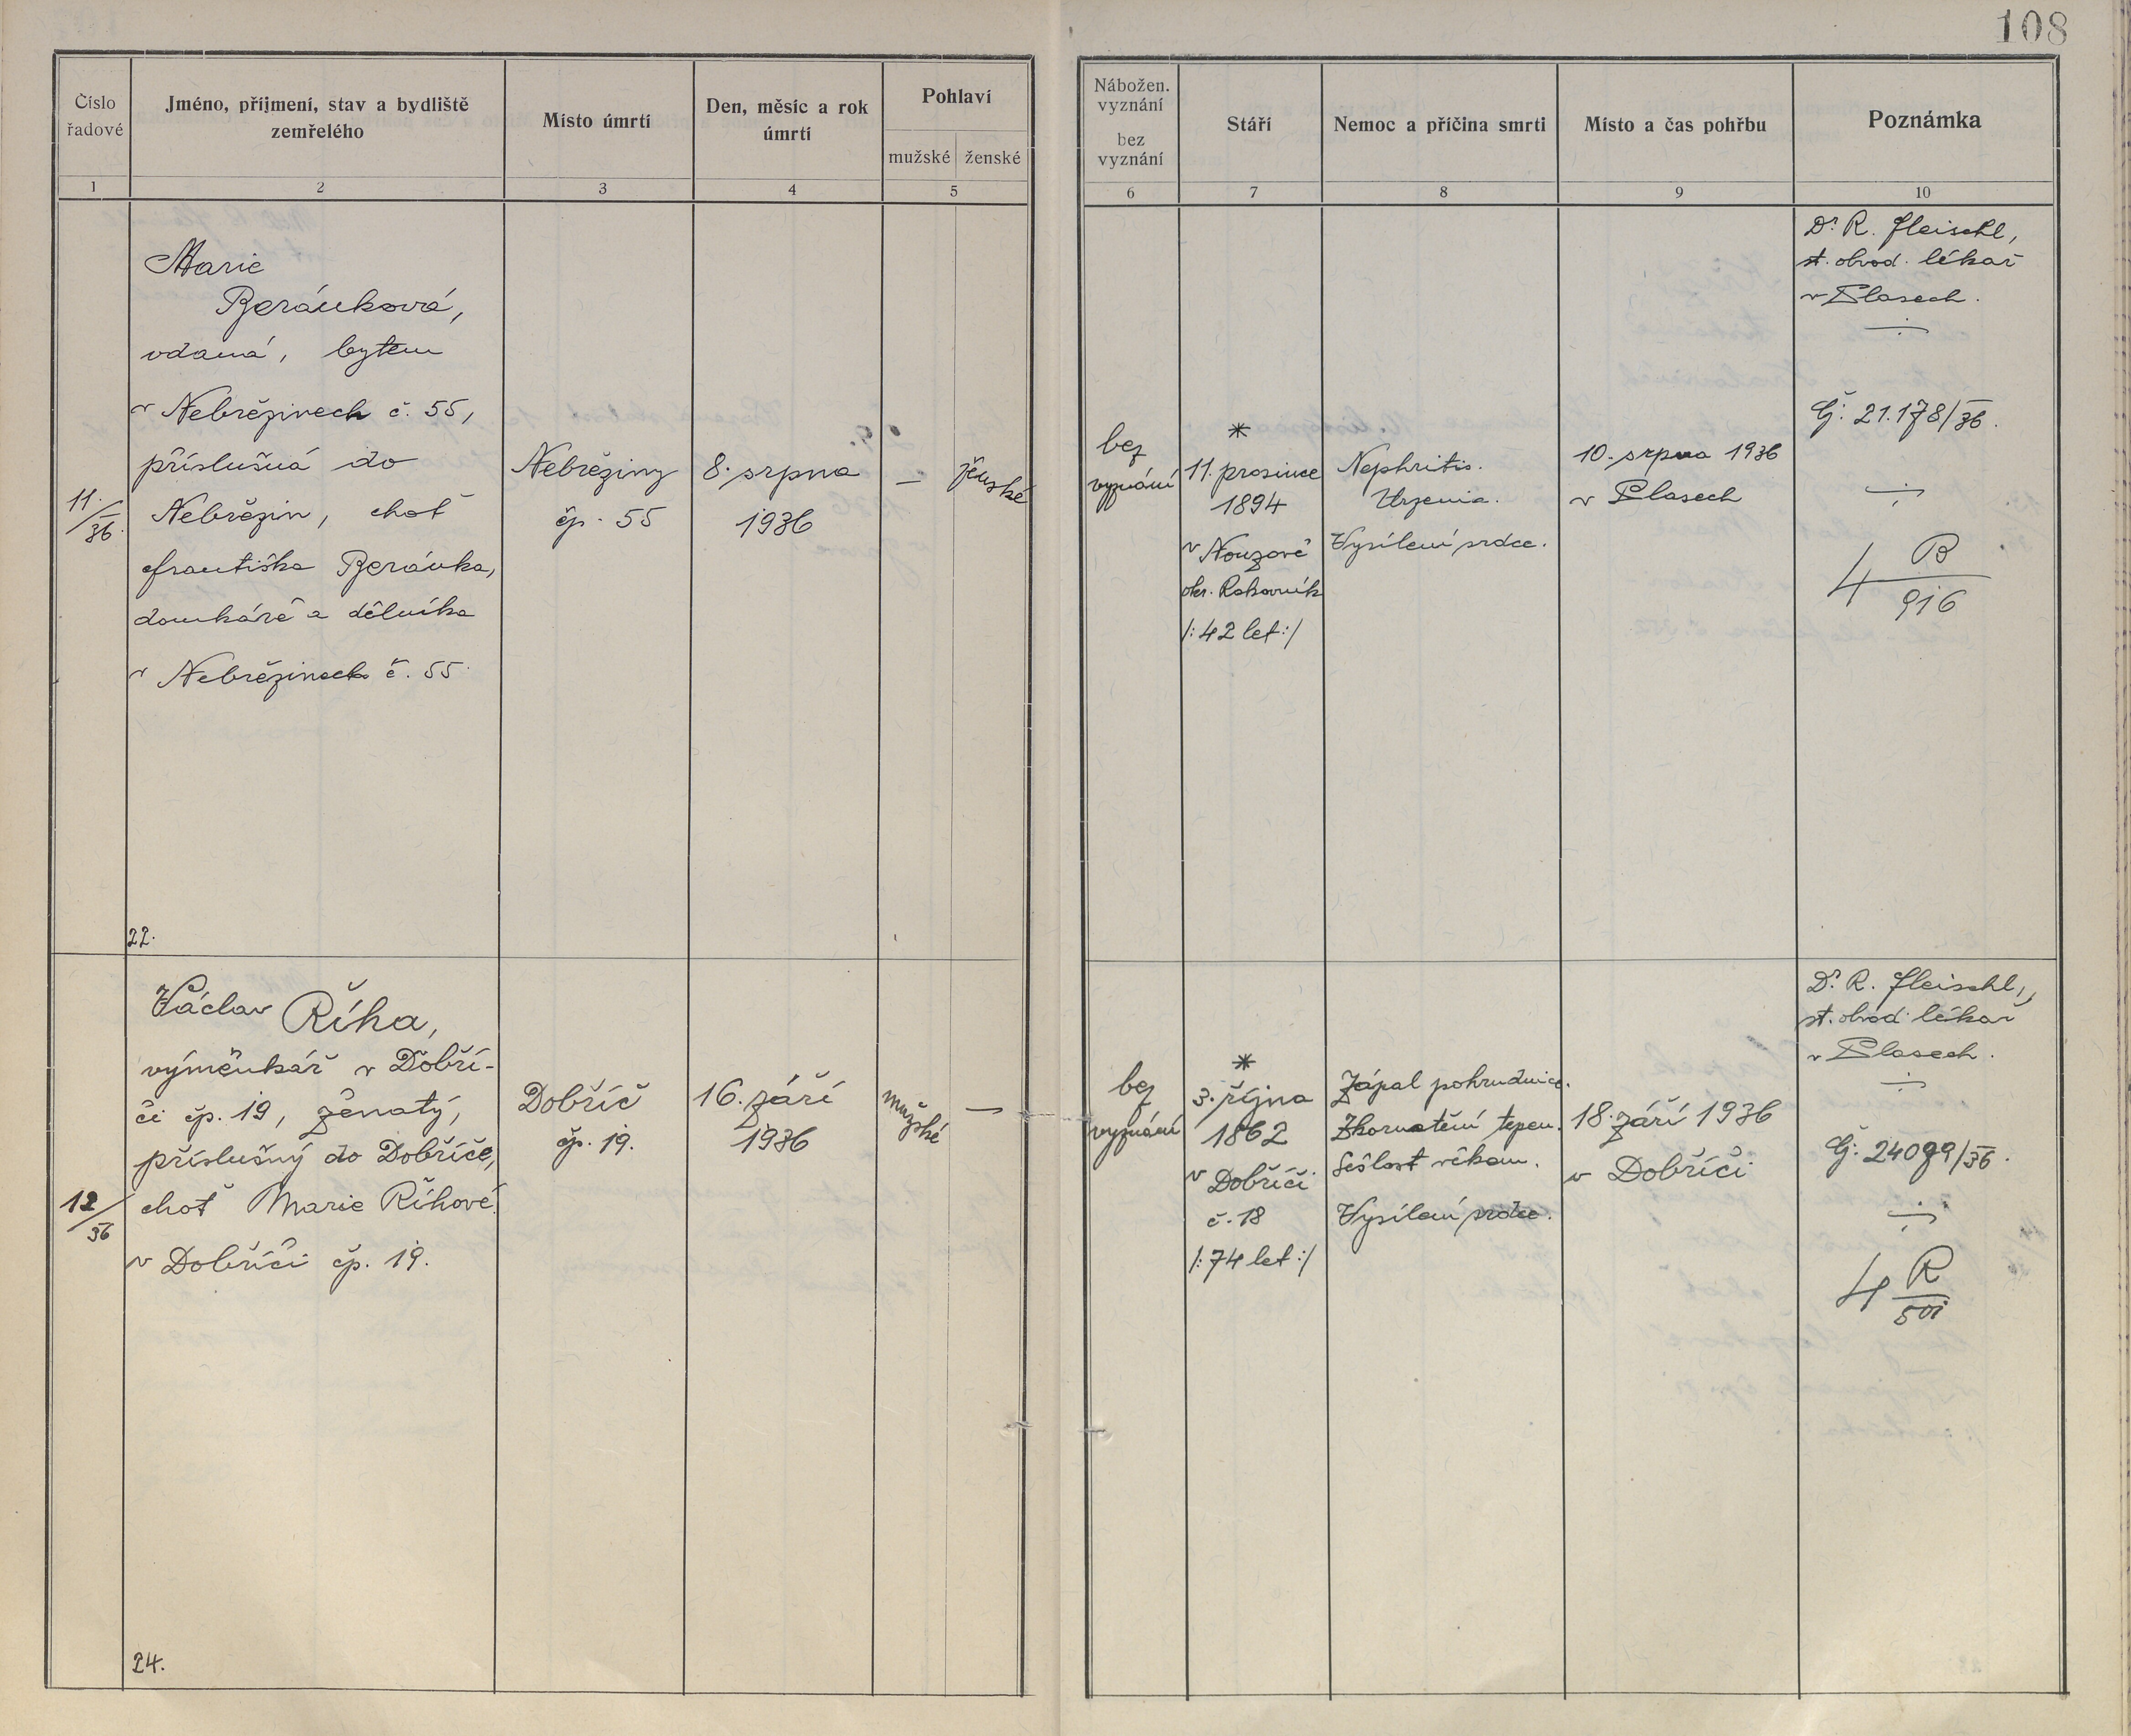 108
Číslo
řadové
Jméno, příjmení, stav a bydliště
zemřelého
Místo úmrtí
Den, měsíc a rok
úmrtí
Pohlaví
mužské
ženské
Nábožen.
vyznání
bez
vyznání
Stáří
Nemoc a příčina smrti
Místo a čas pohřbu
Poznámka
1
2
3
4
5
6
7
8
9
10
11/36.
Marie
Beránková,
vdaná, bytem
v Nebřezinech č. 55,
příslušná do
Nebřezin, choť
Františka Beránka,
domkáře a dělníka
v Nebřezinech č. 55
22.
Nebřeziny
čp. 55
8. srpna
1936
–
ženské
bez
vyznání
*
11. prosince
1894
v Nouzově
okr. Rakovník
/: 42 let :/
Nephritis.
Urzemia.
Vysílení srdce.
10. srpna 1936
v Plasech
Dr. R. Fleischl,
st. obvod. lékař
v Plasech.
Čj: 21.178/36.
4 B
916
12/36
Václav Říha,
výměnkář v Dobří-
či čp. 19, ženatý,
příslušný do Dobříče,
choť Marie Říhové
v Dobříči čp. 19.
24.
Dobříč
čp. 19.
16. září
1936
mužské
–
bez
vyznání
*
3. října
1862
v Dobříči
č. 18
/: 74 let :/
Zápal pohrudnice.
Zkornatění tepen.
Sešlost věkem.
Vysílení srdce.
18. září 1936
v Dobříči
Dr. R. Fleischl,
st. obvod. lékař
v Plasech.
Čj: 24099/36.
4 R
501